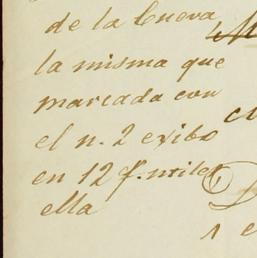 de la Cueva
la misma que
marcada con
el n. 2 exibo
en 12 f. utiles
ella